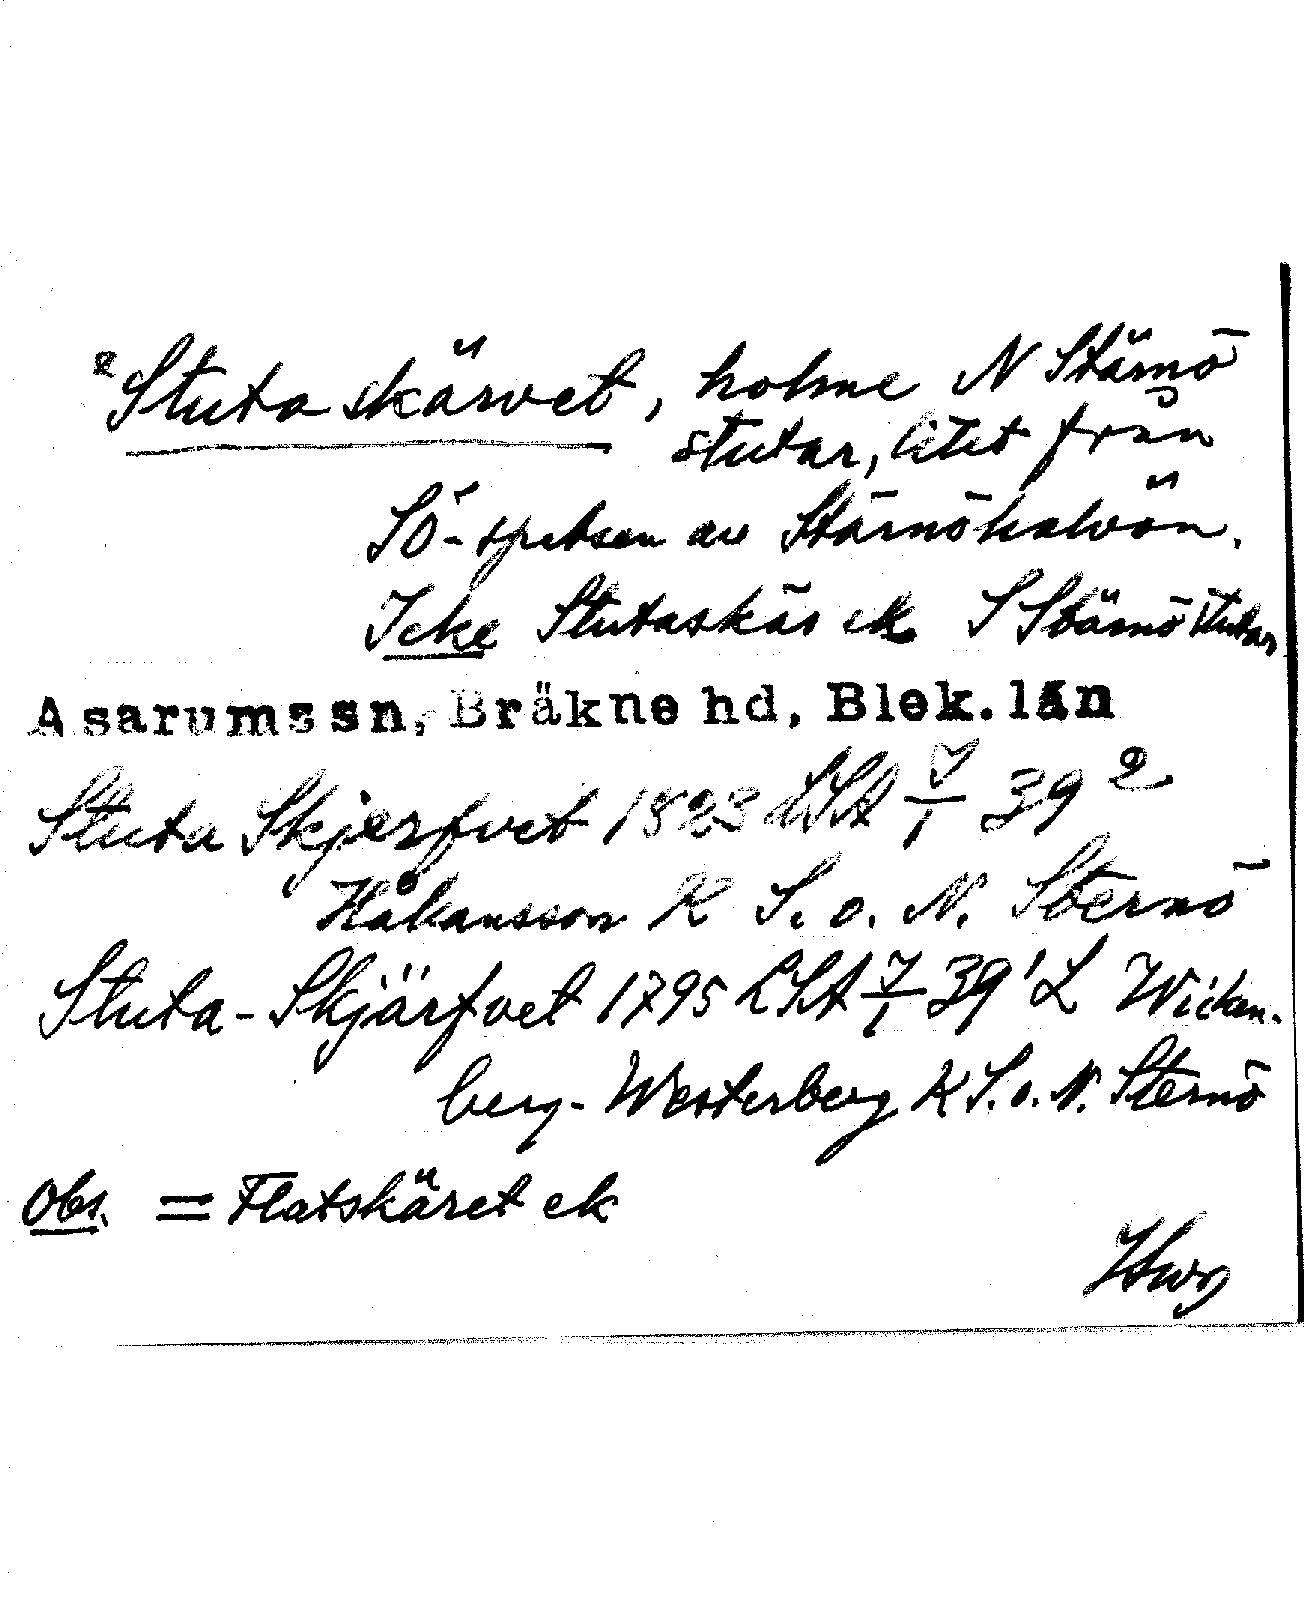 *Stuta skärvet, holme N Stärnö
stutar, litet från
SÖ-spetsen av Stärnöhalvön.
Icke Stutaskär ek S Stärnö stutar,
Asarums sn, Bräkne hd, Blek. län
Stuta Skjerfvet 1823 LSA J/1 39²
Håkansson K S. o. N. Sternö
Stuta-Skjärfvet 1795 LSA J/1 39¹ L Wickan-
berg-Westerberg K S. o. N. Sternö
Obs. = Flatskäret ek